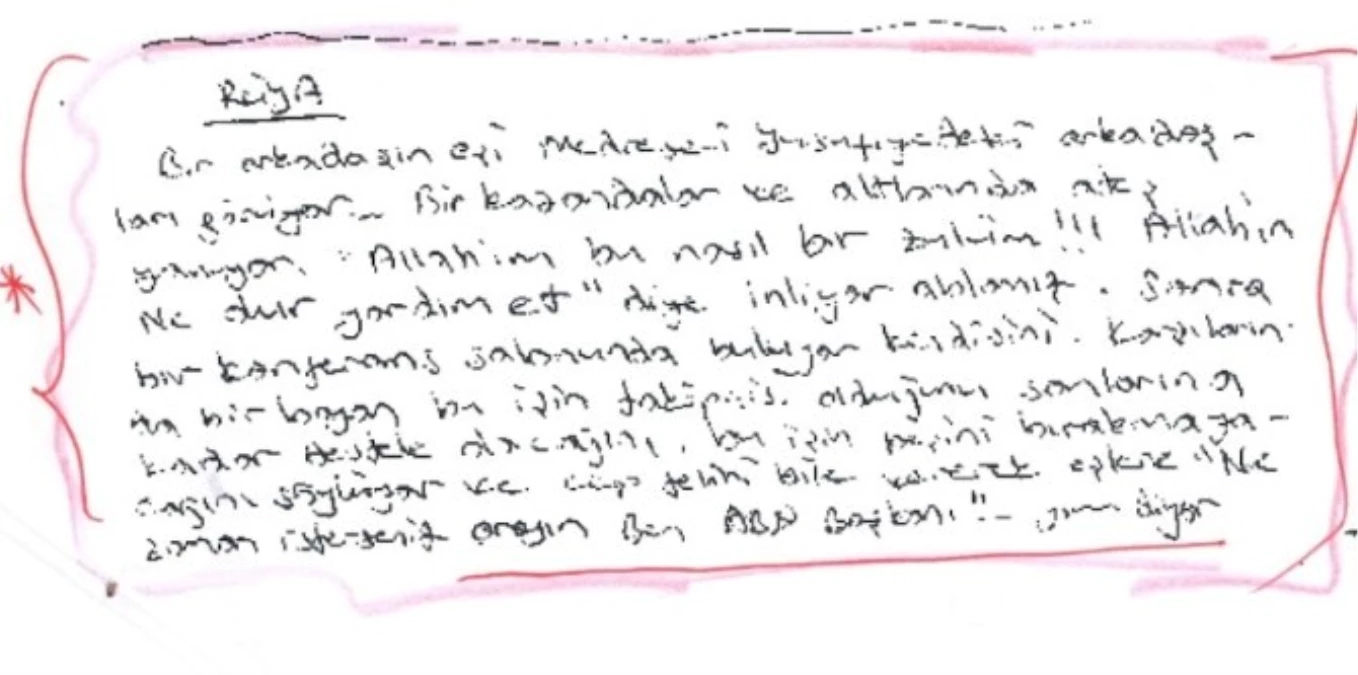 Rüya
Bir arkadaşın eşi Medrese-i Yusufiyedeki arkadaş-
ları görüyor.. Bir kazandalar ve altlarında ateş
yanıyor. "Allahım bu nasıl bir zulüm!!! Allahın
Ne olur yardım et" diye inliyor ablamız. Sonra
bir konferans salonunda buluyor kendisini. Karşıların
da bir bayan bu işin takipçisi olduğunu sonlarına
kadar destek olacağını, bu işin peşini bırakmaya-
cağını söylüyor ve cep telini bile vererek "Ne
zaman isterseniz arayın Ben ABD Başkanı"- diyor